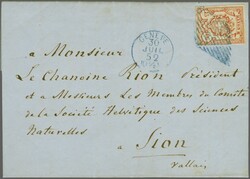 GENÈVE
30
JUIL
52
à Monsieur
Le Chanoine Rion Président
et à Messieurs Les Membres du Comité
de la Société Helvétique des Sciences
Naturelles
à Sion
Vallais